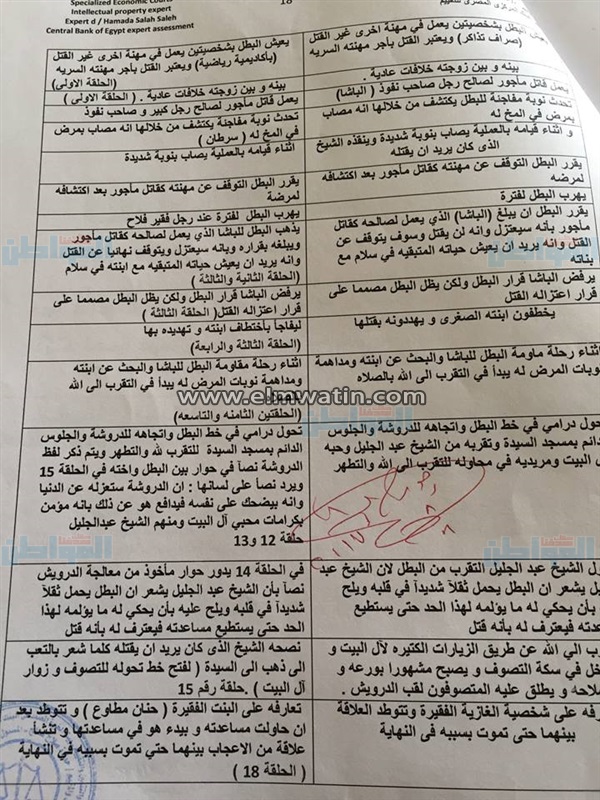 Specialized Economic Courts
Intellectual property expert
Expert d / Hamada Salah Saleh
Central Bank of Egypt expert assessment
18
المركزى المصرى للتقييم
بشخصيتين يعمل في مهنة اخرى غير القتل
(صراف تذاكر) ويعتبر القتل بأجر مهنته السريه
بينه و بين زوجته خلافات عادية .
يعمل قاتل مأجور لصالح رجل صاحب نفوذ ( الباشا)
تحدث نوبة مفاجئة للبطل يكتشف من خلالها انه مصاب
بمرض في المخ له
و اثناء قيامه بالعملية يصاب بنوبة شديدة وينقذه الشيخ
الذى كان يريد ان يقتله
يقرر البطل التوقف عن مهنته كقاتل مأجور بعد اكتشافه
لمرضه
يهرب البطل لفترة
يقرر البطل ان يبلغ (الباشا) الذي يعمل لصالحه كقاتل
مأجور بأنه سيعتزل وانه لن يقتل وسوف يتوقف عن
القتل وانه يريد ان يعيش حياته المتبقيه في سلام مع
بناته
يرفض الباشا قرار البطل ولكن يظل البطل مصمما على
قرار اعتزاله القتل
يخطفون ابنته الصغرى و يهددونه بقتلها
اثناء رحلة ماومة البطل للباشا والبحث عن ابنته ومداهمة
نوبات المرض له يبدأ في التقرب الى الله بالصلاه
تحول درامي في خط البطل واتجاهه للدروشة والجلوس
الدائم بمسجد السيدة وتقربه من الشيخ عبد الجليل وحبه
البيت ومريديه في محاوله للتقرب الى الله والتطهر
ول الشيخ عبد الجليل التقرب من البطل لان الشيخ عبد
جليل يشعر ان البطل يحمل ثقلاً شديداً في قلبه ويلح
بأن يحكي له ما يؤلمه لهذا الحد حتى يستطيع
مساعدته فيعترف له بأنه قتل
رب الي الله عن طريق الزيارات الكتيره لآل البيت و
خل في سكة التصوف و يصبح مشهورا بورعه و
لاحه و يطلق عليه المتصوفون لقب الدرويش .
رفه على شخصية الغازية الفقيرة وتتوطد العلاقة
بينهما حتى تموت بسببه فى النهاية
يعيش البطل بشخصيتين يعمل في مهنة اخرى غير القتل
(بأكاديمية رياضية) ويعتبر القتل بأجر مهنته السريه
(الحلقة الاولى)
بينه و بين زوجته خلافات عادية . ( الحلقة الاولى )
يعمل قاتل مأجور لصالح رجل كبير و صاحب نفوذ
تحدث نوبة مفاجئة يكتشف من خلالها انه مصاب بمرض
في المخ له ( سرطان )
اثناء قيامه بالعملية يصاب بنوبة شديدة
يقرر البطل التوقف عن مهنته كقاتل مأجور بعد اكتشافه
لمرضة
يهرب البطل لفترة عند رجل فقير فلاح
يذهب البطل للباشا الذي يعمل لصالحه كقاتل مأجور
ويبلغه بقراره وبانه سيعتزل ويتوقف نهائيا عن القتل
وانه يريد ان يعيش حياته المتبقيه مع ابنته في سلام
(الحلقة الثانية والثالثة )
يرفض الباشا قرار البطل ولكن يظل البطل مصمما على
قرار اعتزاله القتل( الحلقة الثالثة )
ليفاجأ بأختطاف ابنته و تهديده بها
(الحلقة الثالثة والرابعة)
اثناء رحلة مقاومة البطل للباشا والبحث عن ابنته
ومداهمة نوبات المرض له يبدأ في التقرب الى الله
(الحلقتين الثامنه والتاسعه)
تحول درامي في خط البطل واتجاهه للدروشة والجلوس
الدائم بمسجد السيدة للتقرب لله والتطهر ويتم ذكر لفظ
الدروشة نصاً في حوار بين البطل واخته في الحلقة 15
ويرد نصاً على لسانها : ان الدروشة ستعزله عن الدنيا
وانه بيضحك على نفسه فيدافع هو عن ذلك بانه مؤمن
بكرامات محبي آل البيت ومنهم الشيخ عبدالجليل
حلقة 12 و13
في الحلقة 14 يدور حوار مأخوذ من معالجة الدرويش
نصاً بأن الشيخ عبد الجليل يشعر ان البطل يحمل ثقلاً
شديداً في قلبه ويلح عليه بأن يحكي له ما يؤلمه لهذا
الحد حتى يستطيع مساعدته فيعترف له بأنه قتل
نصحه الشيخ الذى كان يريد ان يقتله كلما شعر بالتعب
الى ذهب الى السيدة ( لفتح خط تحوله للتصوف و زوار
آل البيت ) .حلقة رقم 15
تعارفه على البنت الفقيرة ( حنان مطاوع ) و تتوطد بعد
ان حاولت مساعدته و يبدء هو في مساعدتها و تنشأ
علاقة من الاعجاب بينهما حتى تموت بسببه في النهاية
( الحلقة 18 )
www.elmwatin.com
المواطن